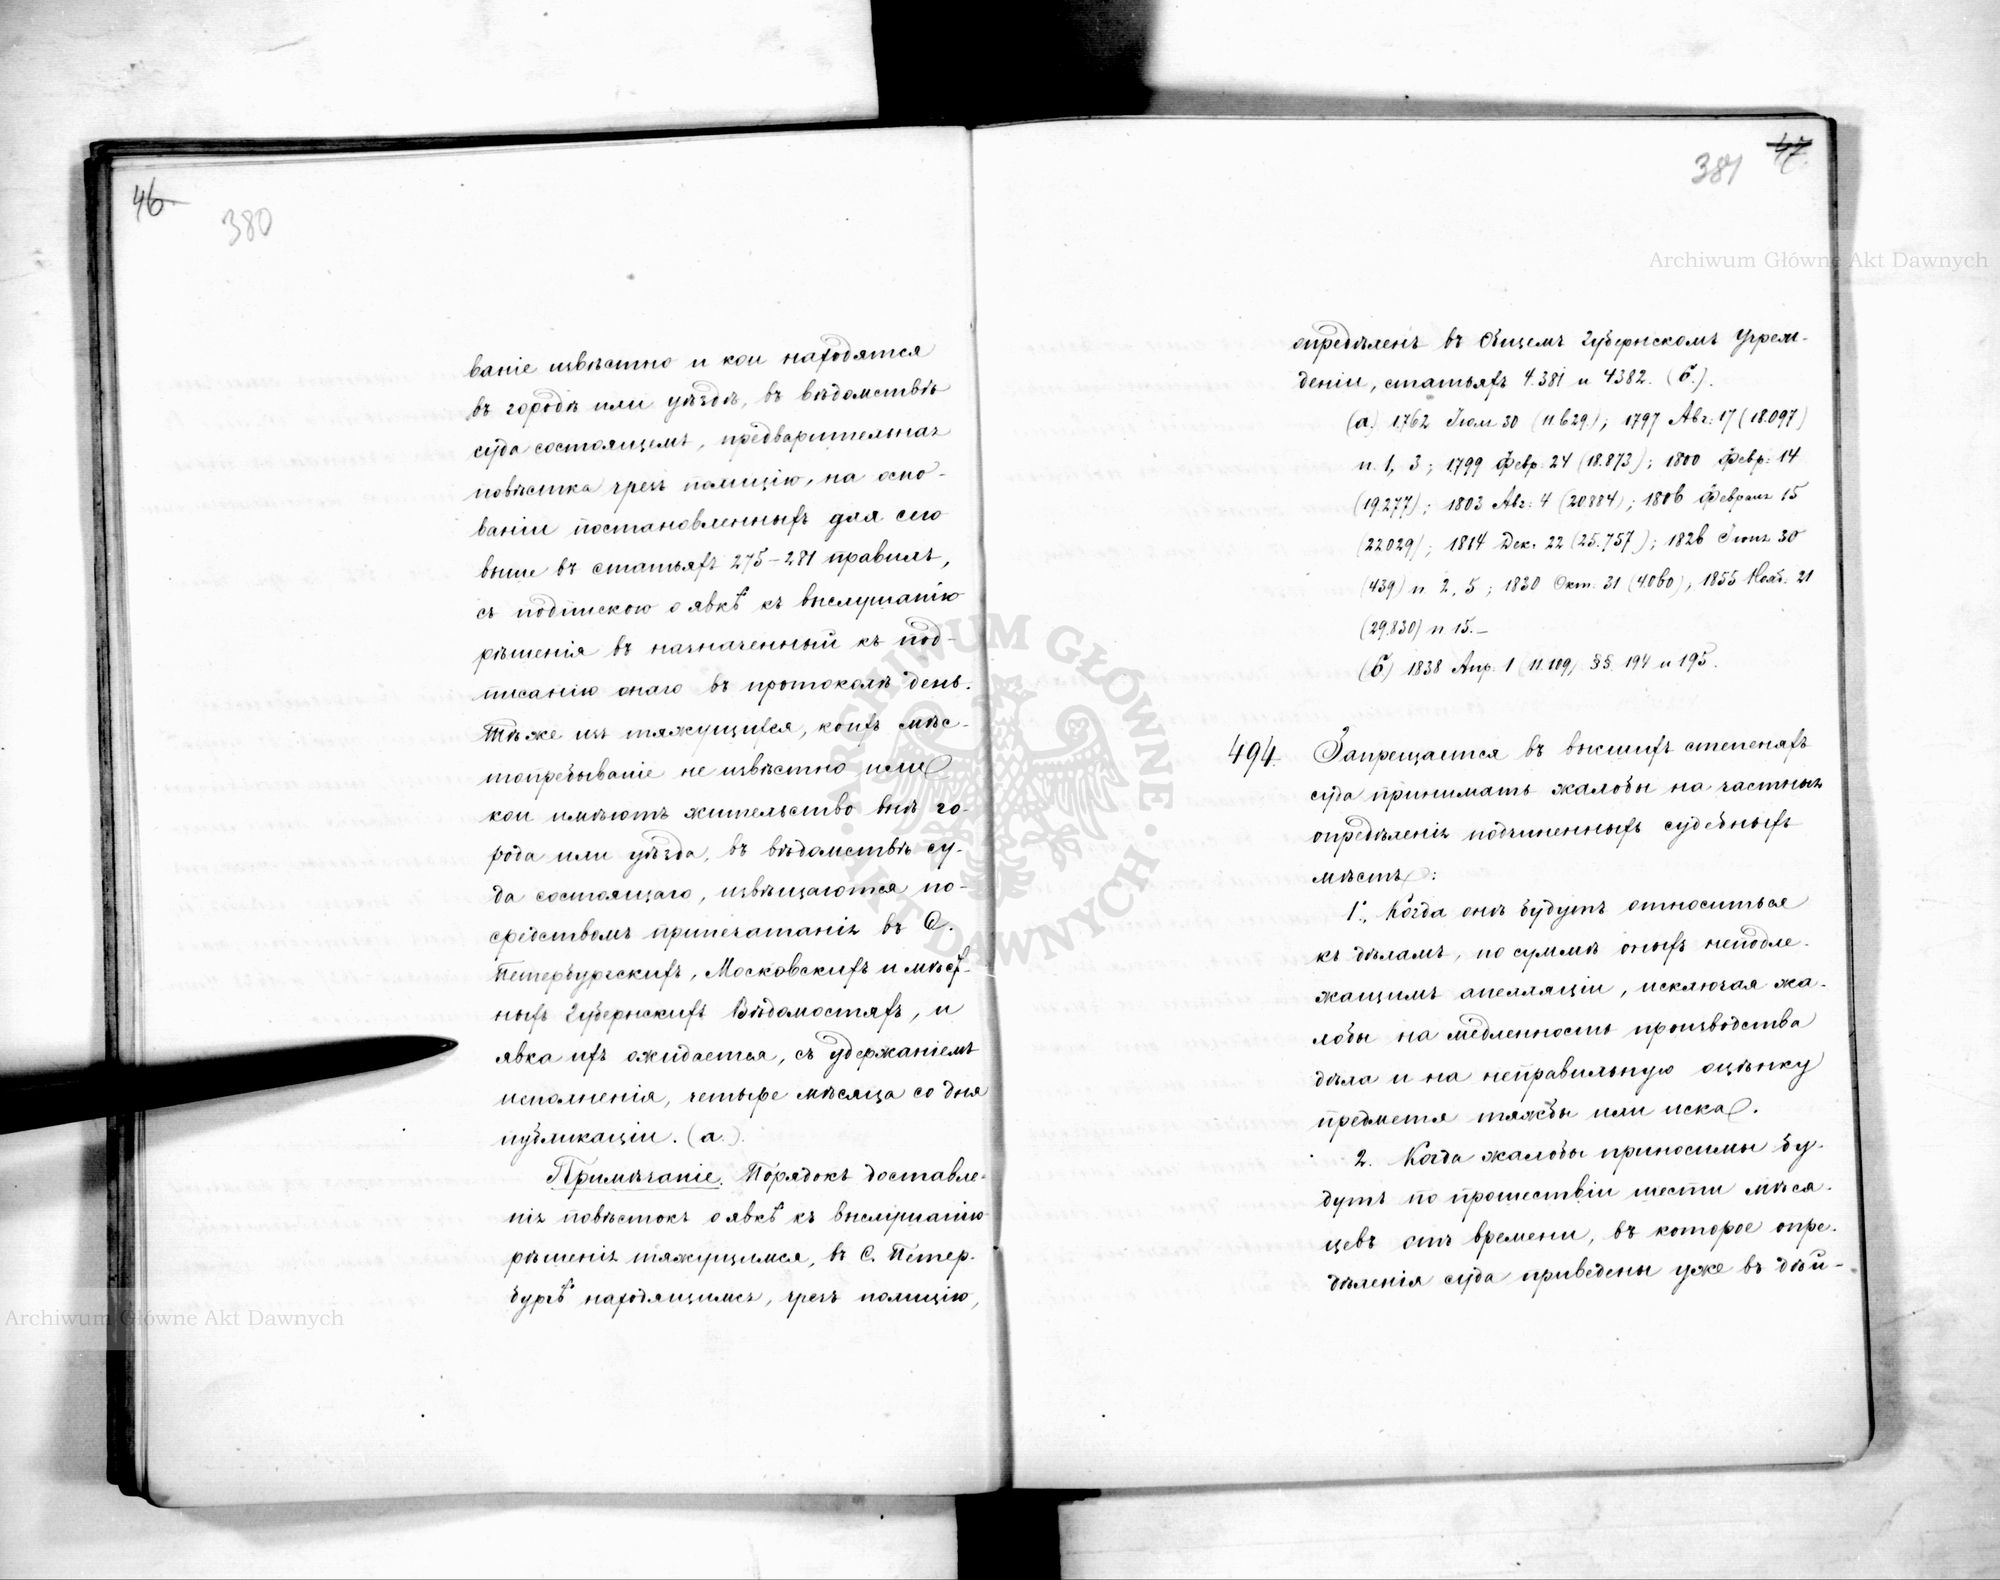 46
380
ваніе извѣстно и кои находятся
въ городѣ или уѣздѣ, въ вѣдомствѣ
суда состоящемъ, предварительная
повѣстка чрезъ полицію, на осно-
ваніи постановленныхъ для сего
выше въ статьяхъ 275-281 правилъ,
съ подпискою о явкѣ къ выслушанію
рѣшенія въ назначенный къ под-
писанію онаго въ протоколѣ день.
Тѣ же изъ тяжущихся, коихъ мѣс-
топребываніе не извѣстно или
кои имѣютъ жительство внѣ го-
рода или уѣзда, въ вѣдомствѣ су-
да состоящаго, извѣщаются по-
средствомъ припечатанія въ С.
Петербургскихъ, Московскихъ и мѣст-
ныхъ Губернскихъ Вѣдомостяхъ, и
явка ихъ ожидается, съ удержаніемъ
исполненія, четыре мѣсяца со дня
публикаціи. (а.).
Примѣчаніе. Порядокъ доставле-
нія повѣстокъ о явкѣ къ выслушанію
рѣшенія тяжущимся, въ С. Петер-
бургѣ находящимся, чрезъ полицію,
47
381
опредѣленъ въ Общемъ Губернскомъ Учреж-
деніи, статьяхъ 4.381 и 4382. (б.).
(а) 1762 Іюл. 30 (11.629.); 1797 Авг. 17 (18.097)
п. 1, 3; 1799 Февр. 24 (18.873); 1800 Февр. 14
(19.277); 1803 Авг. 4 (20884); 1806 Февраля 15
(22029); 1814 Дек. 22 (25.757); 1826 Іюня 30
(439) п. 2, 5; 1830 Окт. 31 (4.060); 1855 Нояб. 21
(29.830) п 15.-
(б) 1838 Апр. 1 (11.109) §§ 194 и 195.
494. Запрещается въ высшихъ степеняхъ
суда принимать жалобы на частныя
опредѣленія подчиненныхъ судебныхъ
мѣстъ:
1., Когда онѣ будутъ относиться
къ дѣламъ, по суммѣ оныхъ неподле-
жащимъ апелляціи, исключая жа-
лобы на медленность производства
дѣла и на неправильную оцѣнку
предмета тяжбы или иска.
2. Когда жалобы приносимы бу-
дутъ по прошествіи шести мѣся-
цевъ отъ времени, въ которое опре-
дѣленія суда приведены уже въ дѣй-
Archiwum Główne Akt Dawnych
Archiwum Główne Akt Dawnych
ARCHIWUM GŁÓWNE · AKT DAWNYCH ·